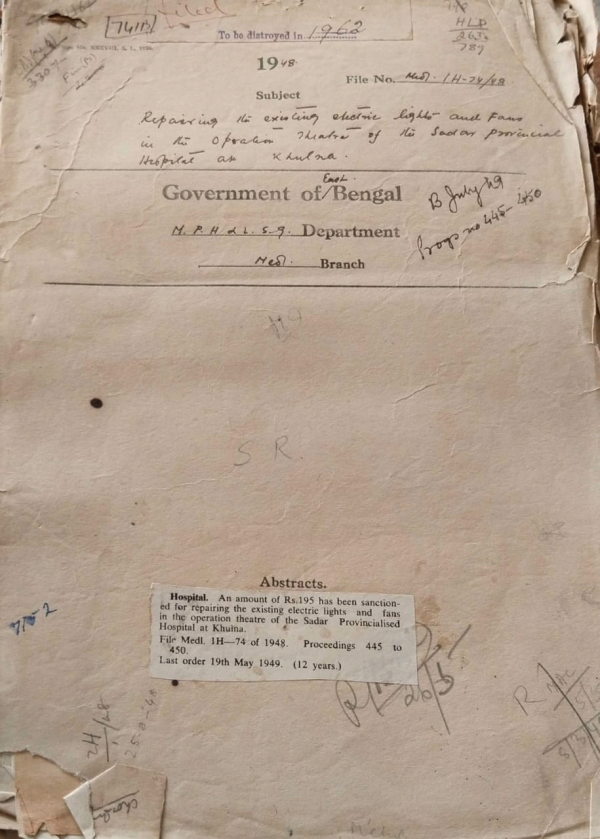 7411
Filed
To be distroyed in 1962
H L P
263
787
1948
File No. Medl. 1H-74/48
Subject
Repairing the existing electric lights and Fans
in the Operation Theatre of the Sadar Provincial
Hospital at Khulna.
Government of East Bengal
M. P. H & L. S. G. Department
Medl. Branch
B July 49
Progs no 445-450
S R.
715 2
Abstracts.
Hospital. An amount of Rs.195 has been sanction-
ed for repairing the existing electric lights and fans
in the operation theatre of the Sadar Provincialised
Hospital at Khulna.
File Medl. 1H—74 of 1948. Proceedings 445 to
450.
Last order 19th May 1949. (12 years.)
26/5